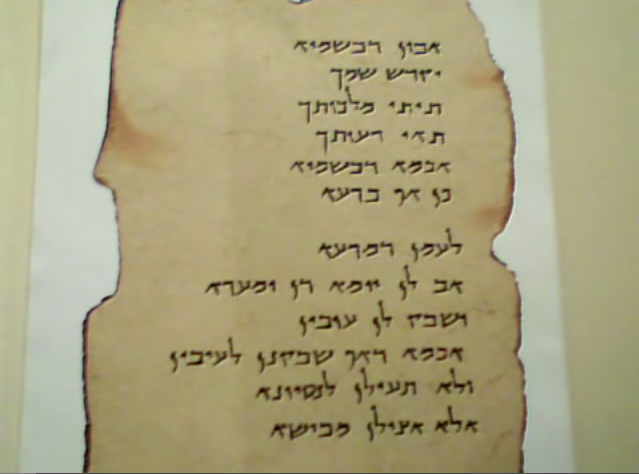 אבון דבשמיא
יקדש שמך
תיתי מלכותך
תהי רעותך
אכמא דבשמיא
כן אף ברעא
לחמן דמרעא
הב לן יומא דן ומחרא
ושבק לן חובין
אכמא דאף שבקנן לחיבין
ולא תעילן לנסיונא
אלא אצילן מבישא